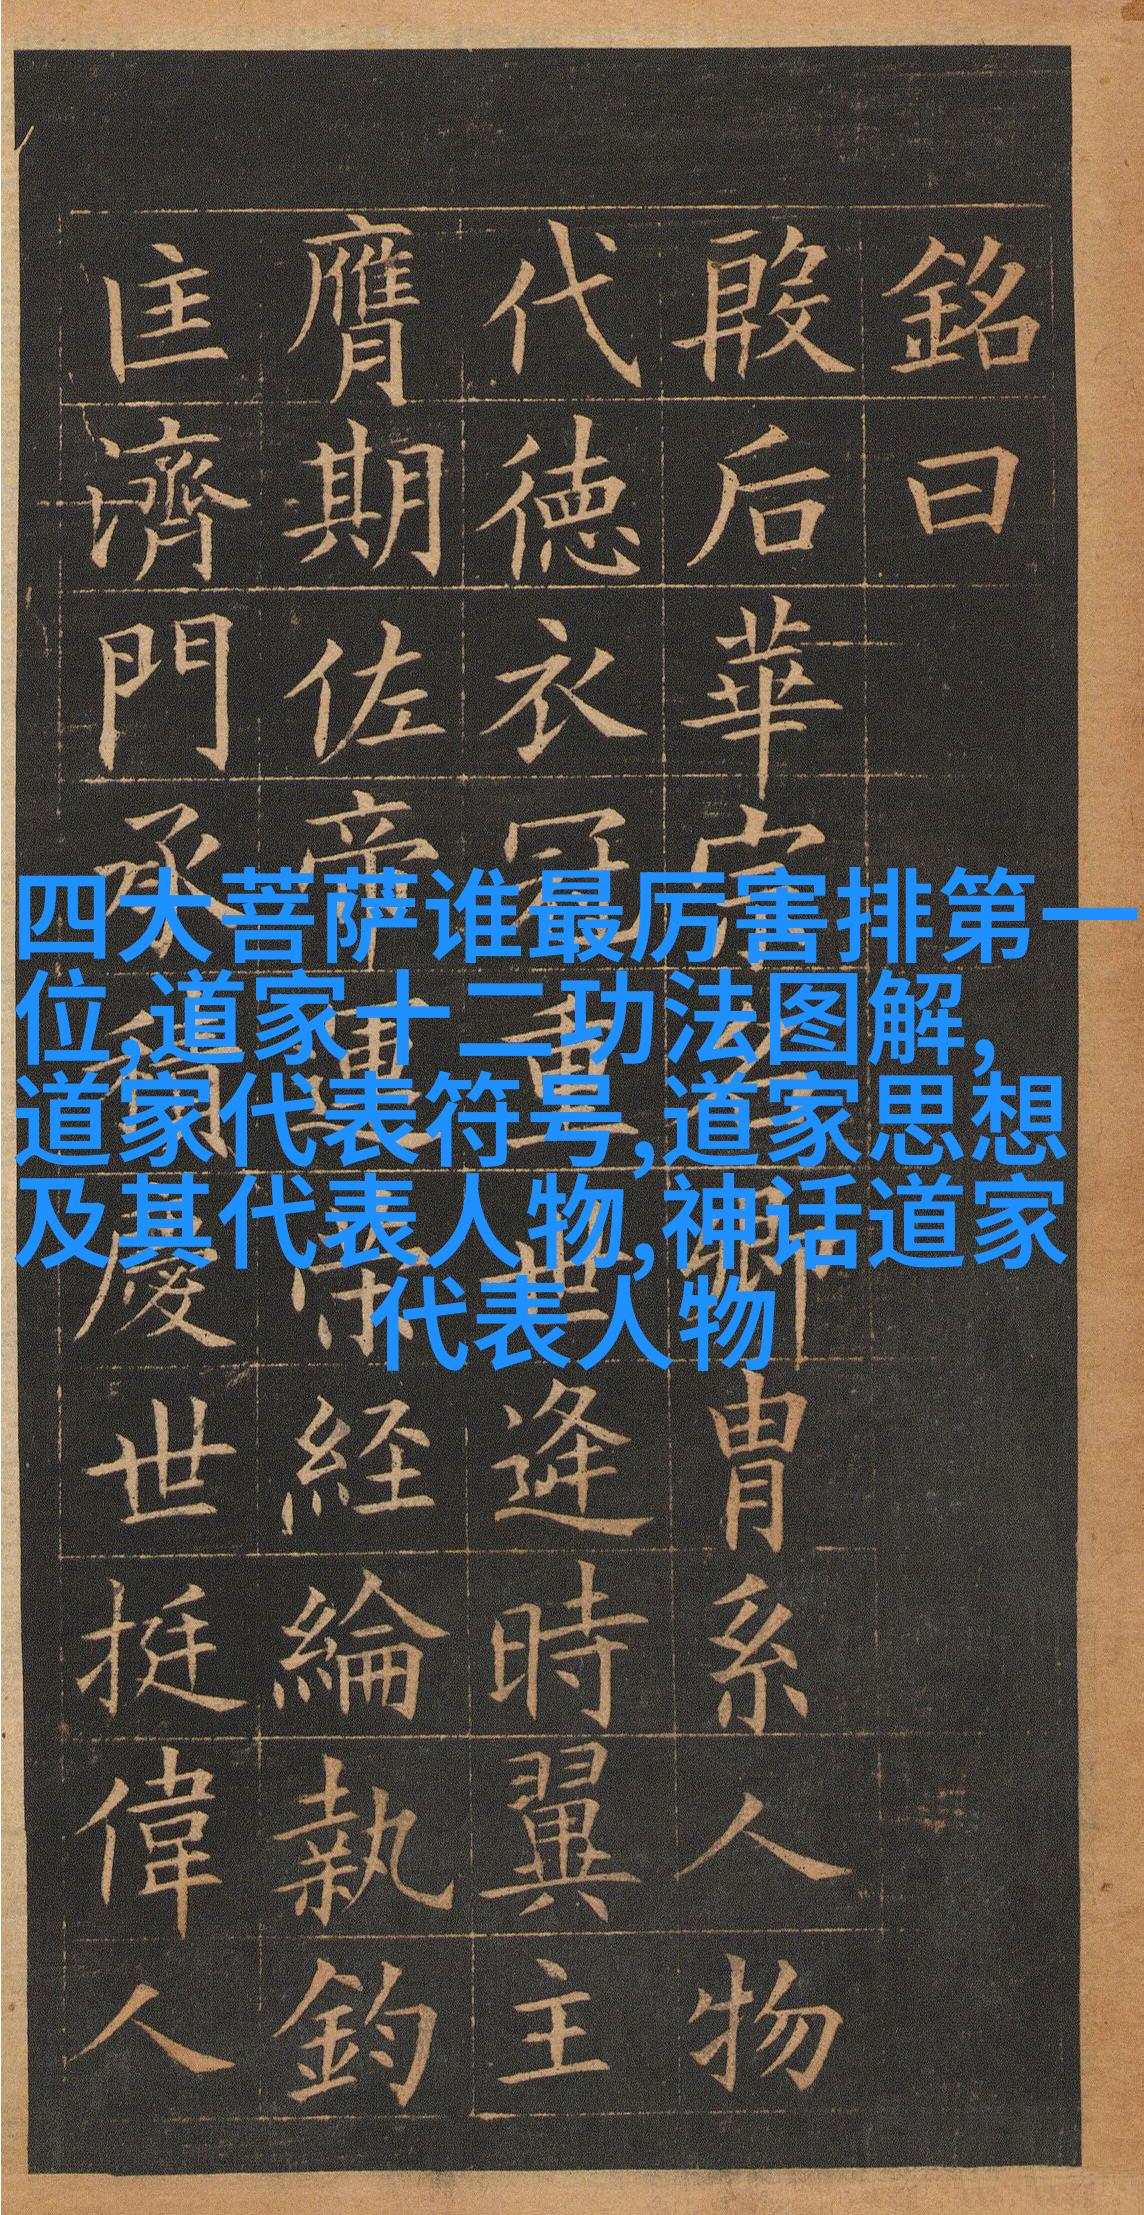 銘曰
殷后華宗名卿胄系人物
代徳衣冠重世逢時翼主
膺期佐帝運策経綸執鈞
匡濟門承積慶世挺偉人
四大菩萨谁最厉害排第一
位,道家十二功法图解,
道家代表符号,道家思想
及其代表人物,神话道家
代表人物